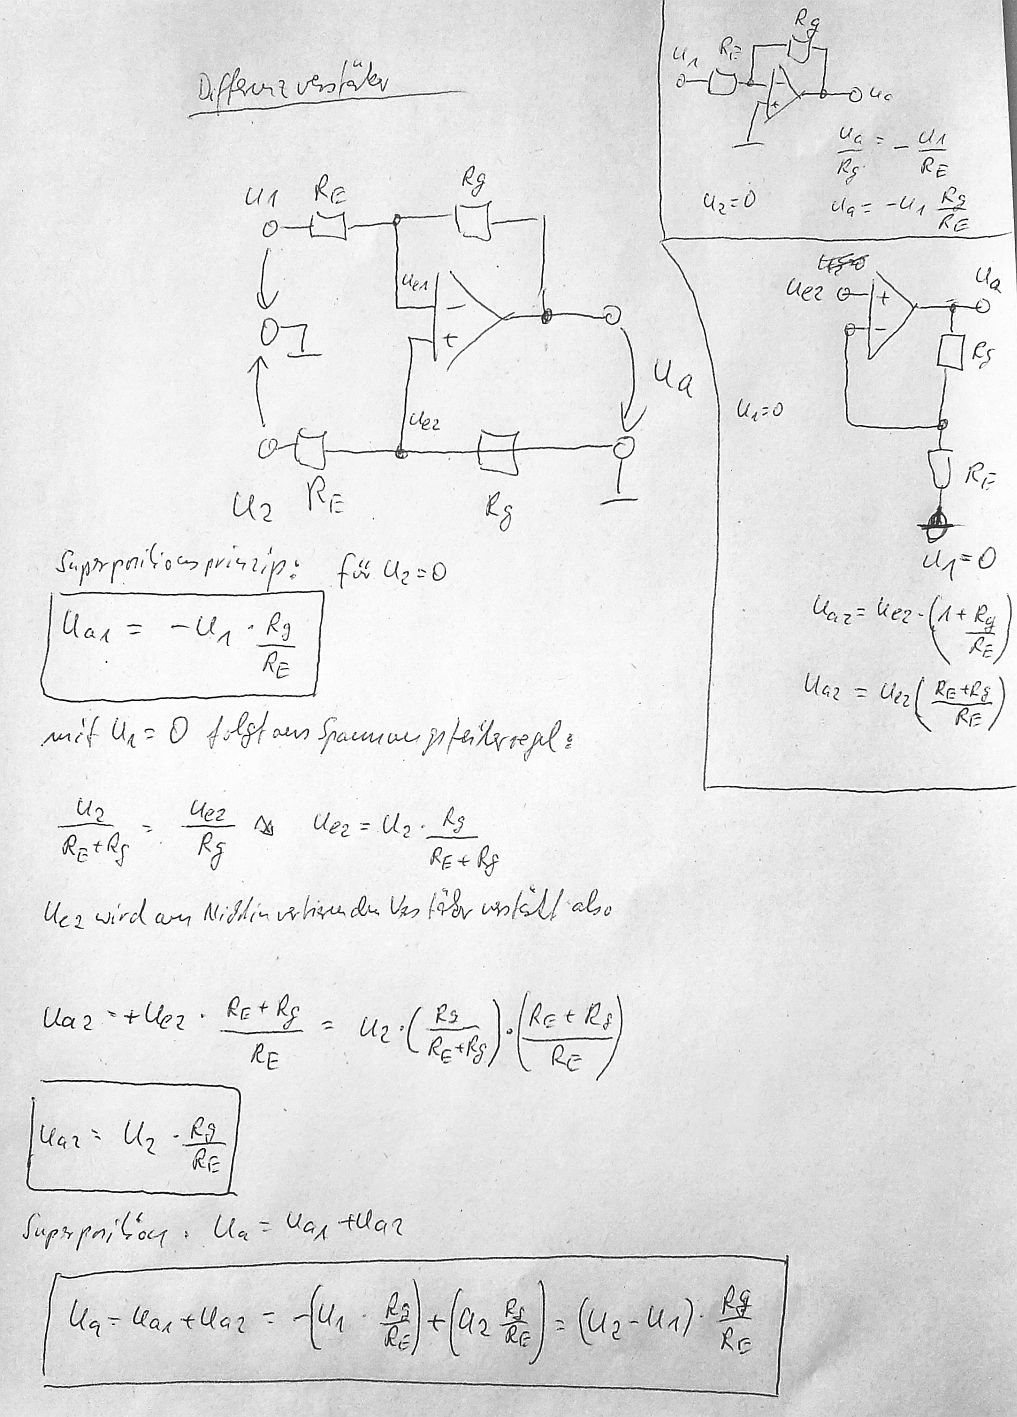 Differenzverstärker
U1 RE Rg
Ue1
−
+
Ua
Ue2
U2 RE Rg
Superpositionsprinzip: für U2=0
Ua1 = −U1 · Rg/RE
mit U1 = 0 folgt aus Spannungsteilerregel:
U2/(RE+Rg) = Ue2/Rg Ue2 = U2 · Rg/(RE+Rg)
Ue2 wird am Nichtinvertierenden Verstärker verstärkt also
Ua2 = +Ue2 · (RE+Rg)/RE = U2 · (Rg/(RE+Rg)) · ((RE+Rg)/RE)
Ua2 = U2 · Rg/RE
Superposition: Ua = Ua1 + Ua2
Ua = Ua1 + Ua2 = −(U1 · Rg/RE) + (U2 Rg/RE) = (U2−U1) · Rg/RE
Rg
U1 RE
−
+
Ua
Ua/Rg = − U1/RE
U2=0 Ua = −U1 Rg/RE
Ue2 + Ua
−
Rg
U1=0
RE
U1=0
Ua2 = Ue2 · (1 + Rg/RE)
Ua2 = Ue2 ((RE+Rg)/RE)